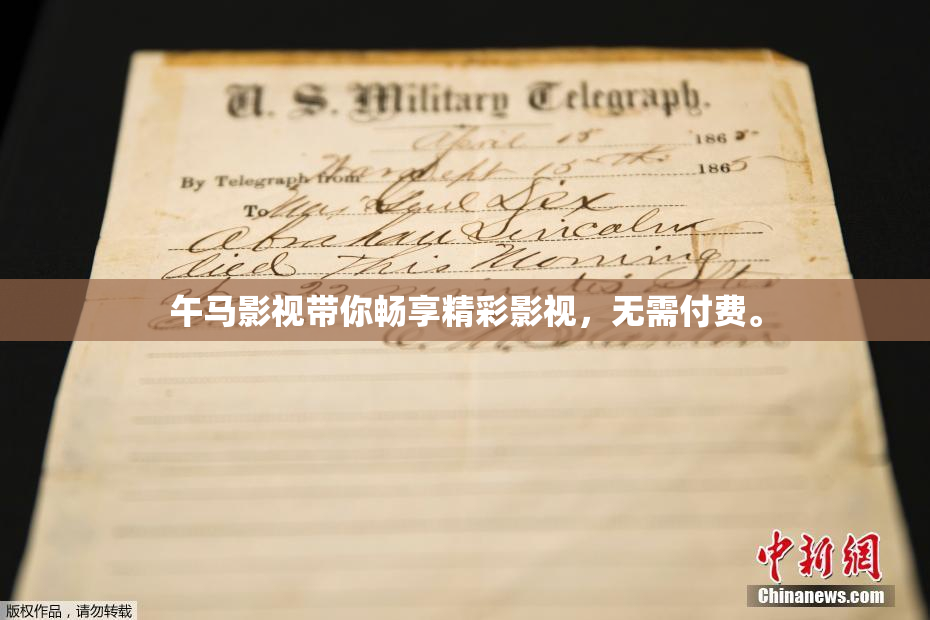 U. S. Military Telegraph.
April 15 1865
By Telegraph from War Dept 15th 1865
To Maj Genl Dix
Abraham Lincoln
died This Morning
at 22 minutes after
午马影视带你畅享精彩影视，无需付费。
E. M. Stanton
中新网
Chinanews.com
版权作品，请勿转载